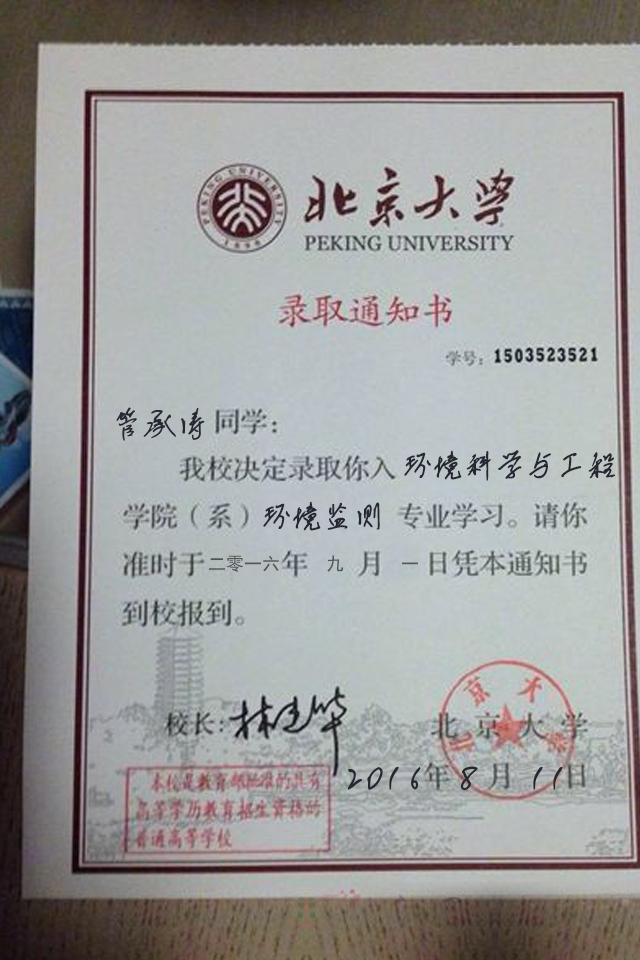 PEKING UNIVERSITY
1898
北京大学
PEKING UNIVERSITY
录取通知书
学号：1503523521
管承涛 同学：
我校决定录取你入 环境科学与工程
学院（系）环境监测 专业学习。请你
准时于二零一六年 九 月 一 日凭本通知书
到校报到。
校长：林建华 北京大学
北京大学
2016年8月11日
本校是教育部批准的具有
高等学历教育招生资格的
普通高等学校